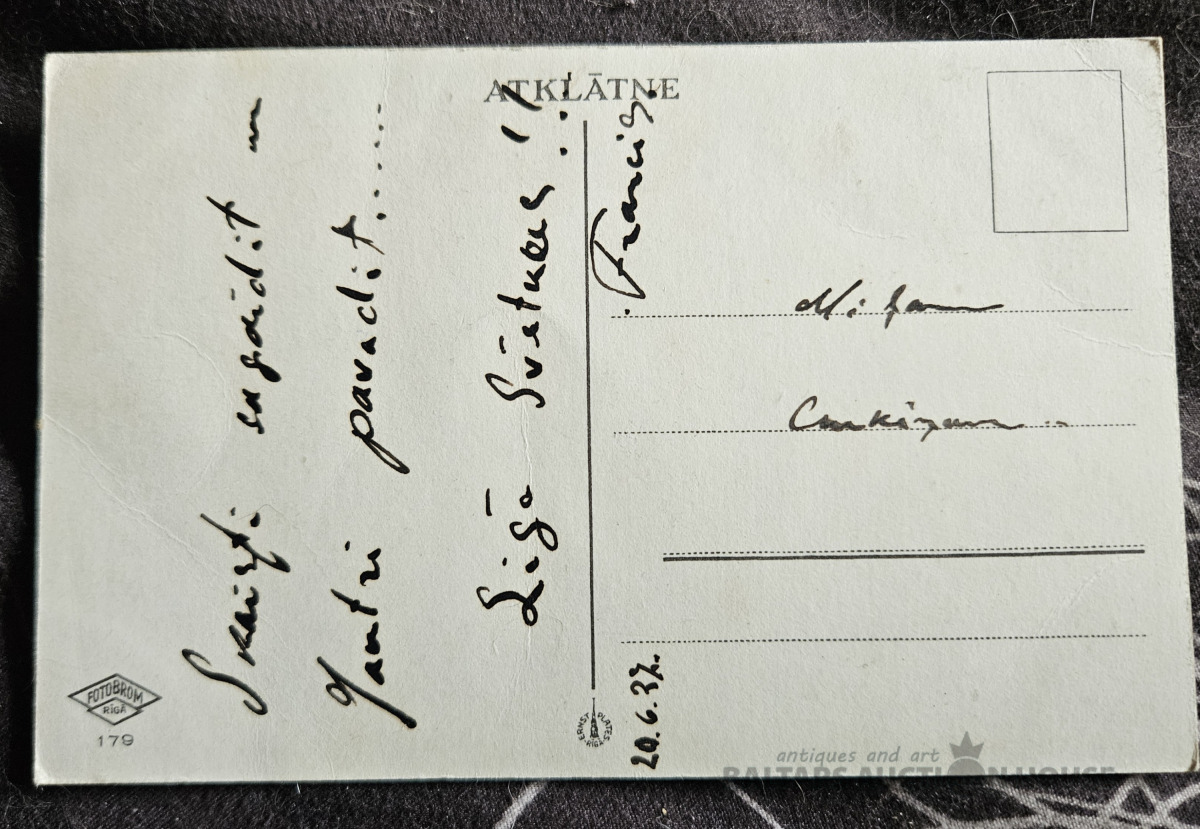 ATKLĀTNE
Skaisti sagaidīt —
Jautri pavadīt.....
Līgo svētkus!!
Francis.
20.6.37.
FOTOBROM
RĪGĀ
179
ERNST PLATES RĪGĀ
antiques and art
BALTARS AUCTION HOUSE